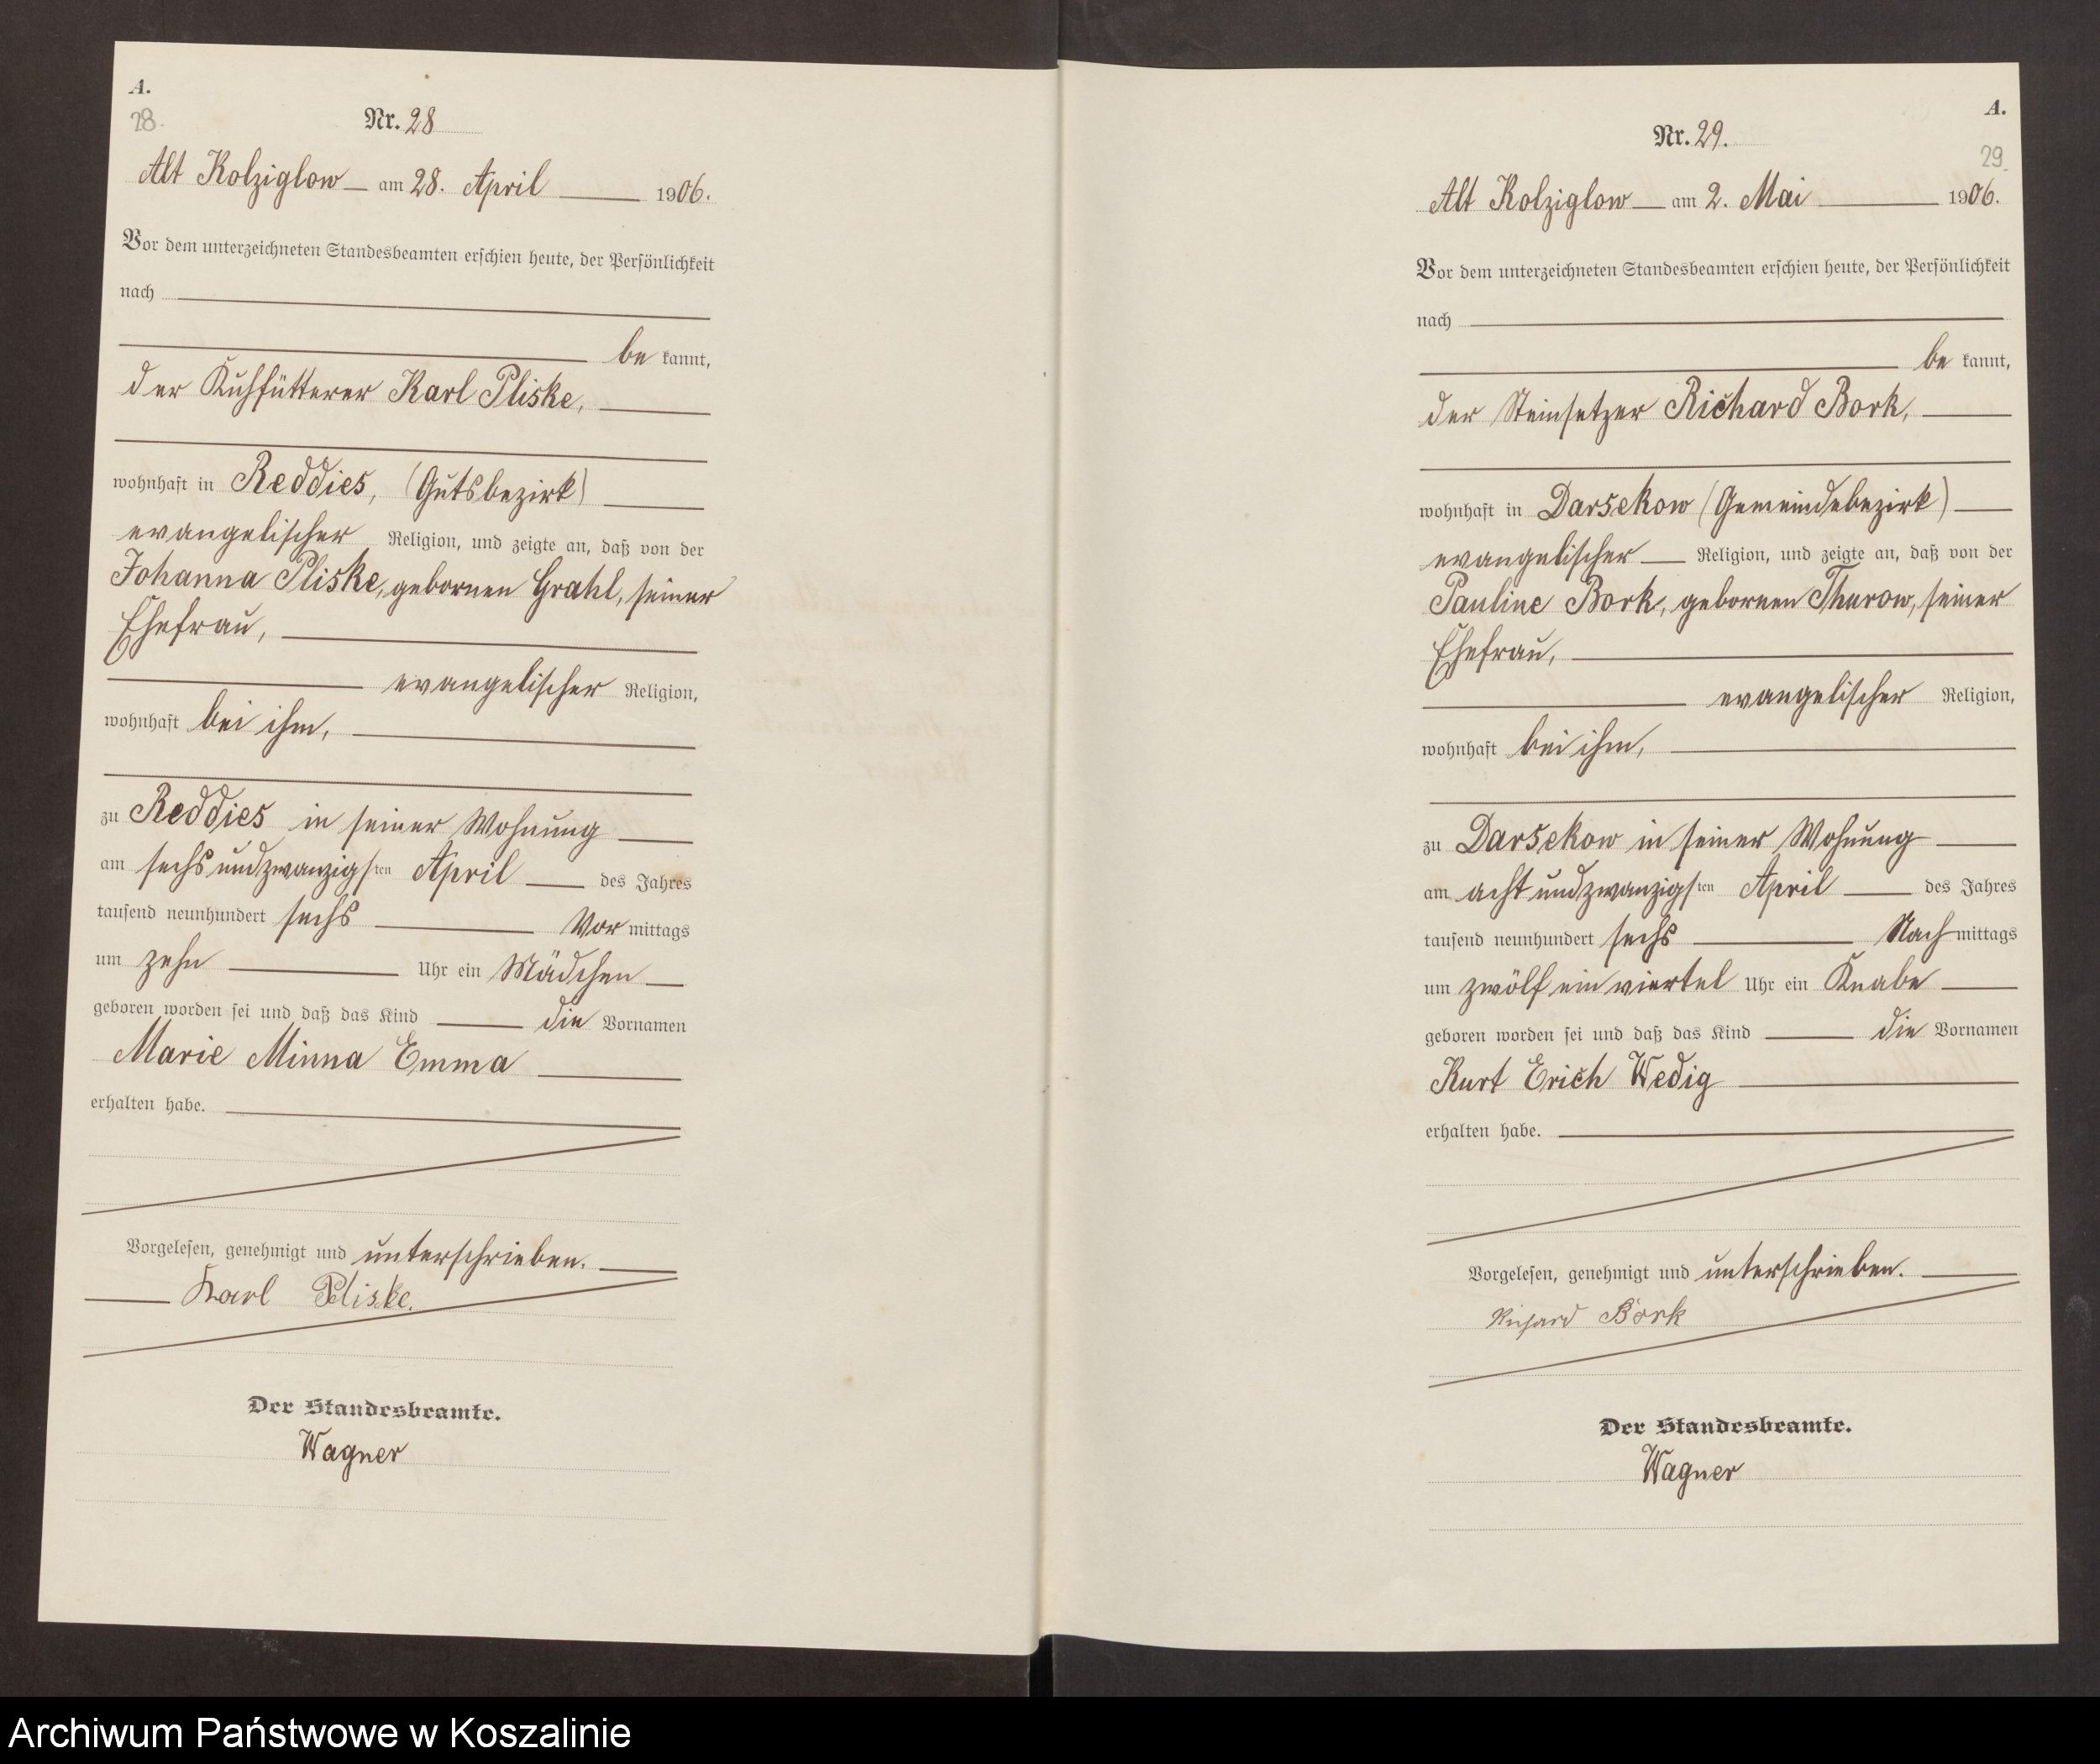 A.
28.
Nr. 28
Alt Kolziglow am 28. April 1906.
Vor dem unterzeichneten Standesbeamten erschien heute, der Persönlichkeit
nach
be kannt,
der Kuhfütterer Karl Pliske,
wohnhaft in Reddies, (Gutsbezirk)
evangelischer Religion, und zeigte an, daß von der
Johanna Pliske, gebornen Grahl, seiner
Ehefrau,
evangelischer Religion,
wohnhaft bei ihm,
zu Reddies in seiner Wohnung
am sechsundzwanzigsten April des Jahres
tausend neunhundert sechs Vor mittags
um zehn Uhr ein Mädchen
geboren worden sei und daß das Kind die Vornamen
Marie Minna Emma
erhalten habe.
Vorgelesen, genehmigt und unterschrieben.
Karl Pliske.
Der Standesbeamte.
Wagner
A.
29
Nr. 29.
Alt Kolziglow am 2. Mai 1906.
Vor dem unterzeichneten Standesbeamten erschien heute, der Persönlichkeit
nach
be kannt,
der Steinsetzer Richard Bork,
wohnhaft in Darsekow (Gemeindebezirk)
evangelischer Religion, und zeigte an, daß von der
Pauline Bork, gebornen Thurow, seiner
Ehefrau,
evangelischer Religion,
wohnhaft bei ihm,
zu Darsekow in seiner Wohnung
am achtundzwanzigsten April des Jahres
tausend neunhundert sechs Nach mittags
um zwölf ein viertel Uhr ein Knabe
geboren worden sei und daß das Kind die Vornamen
Kurt Erich Wedig
erhalten habe.
Vorgelesen, genehmigt und unterschrieben.
Richard Bork
Der Standesbeamte.
Wagner
Archiwum Państwowe w Koszalinie